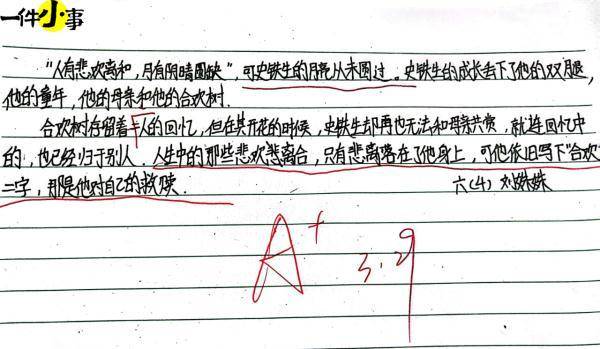 一件小事
"人有悲欢离和，月有阴晴圆缺"，可史铁生的月亮从未圆过。史铁生的成长丢下了他的双腿，
他的童年，他的母亲和他的合欢树.
合欢树存留着人的回忆，但在其开花的时候，史铁生却再也无法和母亲共赏，就连回忆中
的，也已经归于别人.人生中的那些悲欢离合，只有悲离落在了他身上，可他依旧写下"合欢"
二字，那是他对自己的救赎.
六(4) 刘姝姝
A+ 3.29